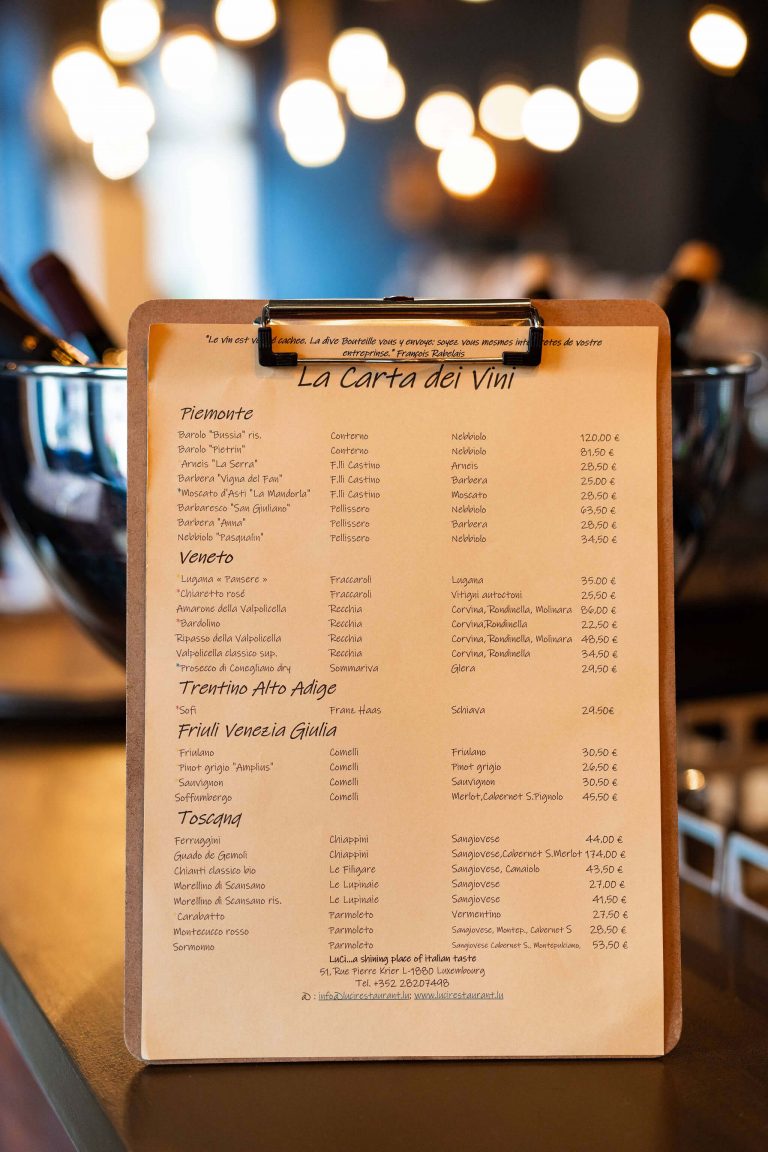 "Le vin est cachee. La dive Bouteille vous y envoye: soyez vous mesmes de vostre
entreprinse." François Rabelais
La Carta dei Vini
Piemonte
Barolo "Bussia" ris. Conterno Nebbiolo 120,00 €
Barolo "Pietrin" Conterno Nebbiolo 81,50 €
Arneis "La Serra" F.lli Castino Arneis 28,50 €
Barbera "Vigna del Fan" F.lli Castino Barbera 25,00 €
*Moscato d'Asti "La Mandorla" F.lli Castino Moscato 28,50 €
Barbaresco "San Giuliano" Pellissero Nebbiolo 63,50 €
Barbera "Anna" Pellissero Barbera 28,50 €
Nebbiolo "Pasqualin" Pellissero Nebbiolo 34,50 €
Veneto
*Lugana « Pansere » Fraccaroli Lugana 35,00 €
*Chiaretto rosé Fraccaroli Vitigni autoctoni 25,50 €
Amarone della Valpolicella Recchia Corvina, Rondinella, Molinara 86,00 €
*Bardolino Recchia Corvina,Rondinella 22,50 €
Ripasso della Valpolicella Recchia Corvina, Rondinella, Molinara 48,50 €
Valpolicella classico sup. Recchia Corvina, Rondinella 34,50 €
*Prosecco di Conegliano dry Sommariva Glera 29,50 €
Trentino Alto Adige
*Sofi Franz Haas Schiava 29,50€
Friuli Venezia Giulia
Friulano Comelli Friulano 30,50 €
Pinot grigio "Amplius" Comelli Pinot grigio 26,50 €
Sauvignon Comelli Sauvignon 30,50 €
Soffumbergo Comelli Merlot,Cabernet S.Pignolo 45,50 €
Toscana
Ferruggini Chiappini Sangiovese 44,00 €
Guado de Gemoli Chiappini Sangiovese,Cabernet S.Merlot 174,00 €
Chianti classico bio Le Filigare Sangiovese, Canaiolo 43,50 €
Morellino di Scansano Le Lupinaie Sangiovese 27,00 €
Morellino di Scansano ris. Le Lupinaie Sangiovese 41,50 €
Carabatto Parmoleto Vermentino 27,50 €
Montecucco rosso Parmoleto Sangiovese, Montep., Cabernet S 28,50 €
Sormonno Parmoleto Sangiovese Cabernet S., Montepulciano, 53,50 €
LuCi...a shining place of Italian taste
51, Rue Pierre Krier L-1880 Luxembourg
Tel. +352 28207498
@ : info@lucirestaurant.lu; www.lucirestaurant.lu